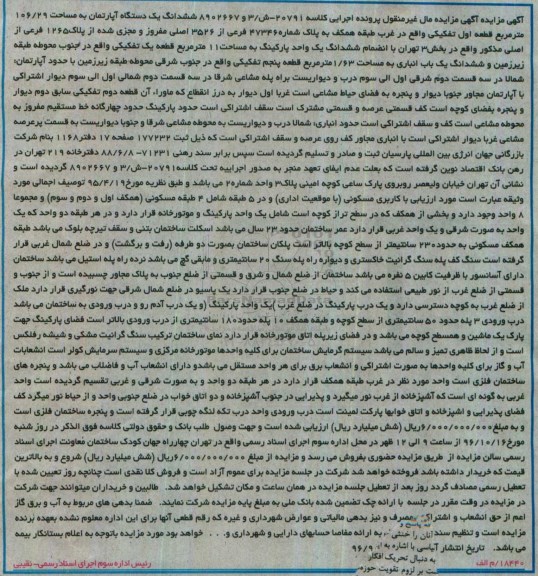 آگهی مزایده آگهی مزایده مال غیرمنقول پرونده اجرایی کلاسه ۲۰۷۹۱-ش/۳ و ۸۹۰۲۶۶۷ ششدانگ یک دستگاه آپارتمان به مساحت ۱۰۶/۲۹
مترمربع قطعه اول تفکیکی واقع در غرب طبقه همکف به پلاک ۷۳۴۶ فرعی از ۳۵۲۶ اصلی مفروز و مجزی شده از پلاک ۱۲۶۵ فرعی از
اصلی مذکور واقع در بخش ۳ تهران با انضمام ششدانگ یک واحد پارکینگ به مساحت ۱۱ مترمربع قطعه یک تفکیکی واقع در جنوب محوطه طبقه
زیرزمین و ششدانگ یک باب انباری به مساحت ۱/۶۳ مترمربع قطعه پنجم تفکیکی واقع در جنوب شرقی محوطه طبقه زیرزمین با حدود آپارتمان:
شمالا در سه قسمت دوم شرقی اول الی سوم درب و دیواریست براه پله مشاعی شرقا در سه قسمت دوم شمالی اول الی سوم دیوار اشتراکی
با آپارتمان مجاور جنوبا دیوار و پنجره به فضای حیاط مشاعی است غربا اول دیوار به درز انقطاع که ماورا، آن قطعه دوم تفکیکی سابق دوم دیوار
و پنجره بفضای کوچه است کف قسمتی عرصه و قسمتی مشترک است سقف اشتراکی است حدود پارکینگ حدود چهارگانه خط مستقیم مفروز به
محوطه مشاعی است کف و سقف اشتراکی است حدود انباری، شمالا درب و دیواریست به محوطه مشاعی شرقا و جنوبا دیواریست به قسمت پرعرصه
مشاعی غربا دیوار اشتراکی است با انباری مجاور کف روی عرصه و سقف اشتراکی است که ذیل ثبت ۱۷۷۲۳۲ صفحه ۱۷ دفتر ۱۱۶۸ بنام شرکت
بازرگانی جهان انرژی بین المللی پارسیان ثبت و صادر و تسلیم گردیده است سپس برابر سند رهنی ۷۱۲۳۱- ۸۸/۶/۸ دفترخانه ۲۱۹ تهران در
رهن بانک اقتصاد نوین گرفته است که بعلت عدم ایفای تعهد منجر به صدور اجراییه تحت کلاسه ۲۰۷۹۱-ش/۳ و ۸۹۰۲۶۶۷ گردیده است و
نشانی آن تهران خیابان ولیعصر روبروی پارک ساعی کوچه امینی پلاک ۳ واحد شماره ۲ می باشد و طبق نظریه مورخ ۹۵/۴/۱۹ توصیف اجمالی مورد
وثیقه عبارت است مورد ارزیابی با کاربری مسکونی (با موقعیت اداری) و در ۵ طبقه شامل ۴ طبقه مسکونی (همکف اول و دوم و سوم) و مجموعا
۸ واحد وجود دارد و بخشی از همکف که در سطح تراز کوچه است شامل یک واحد پارکینگ و موتورخانه قرار دارد و در هر طبقه دو واحد که یک
واحد به صورت شرقی و یک واحد غربی قرار دارد عمر ساختمان حدود ۲۳ سال می باشد اسکلت ساختمان بتنی و سقف تیرچه بلوک می باشد طبقه
همکف مسکونی به حدود ۲۳۰ سانتیمتر از سطح کوچه بالاتر است پلکان ساختمان بصورت دو طرفه (رفت و برگشت) و در ضلع شمال غربی قرار
گرفته است سنگ کف پله سنگ گرانیت خاکستری و دیواره راه پله سنگ ۲۰ سانتیمتری و مابقی گچ می باشد نرده راه پله استیل می باشد ساختمان
دارای آسانسور با ظرفیت کابین ۵ نفره می باشد ساختمان از ضلع شمال و شرق و قسمتی از ضلع جنوب به پلاک مجاور چسبیده است و از جنوب و
قسمتی از ضلع غرب از نور طبیعی استفاده می کند و حیاط در ضلع جنوب قرار دارد یک پاسیو در ضلع شمال شرقی جهت نورگیری قرار دارد ملک
از ضلع غرب به کوچه دسترسی دارد و یک درب پارکینگ در ضلع غرب )یک واحد پارکینگ (و یک درب آدم رو و درب ورودی به ساختمان می باشد
درب ورودی ۳ پله حدود ۵۰ سانتیمتری از سطح کوچه و طبقه همکف ۱۰ پله حدود ۱۸۰ سانتیمتری از درب ورودی بالاتر است فضای پارکینگ جهت
پارک یک ماشین و همسطح کوچه می باشد و در فضای زیرپله اتاق موتورخانه قرار دارد نمای ساختمان ترکیب سنگ گرانیت مشکی و شیشه رفلکس
است و از لحاظ ظاهری تمیز و سالم می باشد سیستم گرمایش ساختمان برای کلیه واحدها موتورخانه مرکزی و سیستم سرمایش کولر است انشعابات
آب و گاز برای کلیه واحدها به صورت اشتراکی و انشعاب برق برای هر واحد مستقل می باشدو دارای انشعاب آب و فاضلاب می باشد و پنجره های
ساختمان فلزی است واحد مورد نظر در غرب طبقه همکف قرار دارد در هر طبقه دو واحد و به صورت شرقی و غربی تقسیم گردیده است واحد
غربی به گونه ای است که آشپزخانه از غرب نور میگیرد و پذیرایی در جنوب آشپزخانه و دو اتاق خواب در ضلع جنوبی واحد و از حیاط نور میگرد کف
فضای پذیرایی و آشپزخانه و اتاق خوابها پارکت لمینت است درب ورودی واحد درب تکه لنگه چوبی قرار گرفته است و پنجره ساختمان فلزی است
و به مبلغ ۶/۰۰۰/۰۰۰/۰۰۰ریال (شش میلیارد ریال) ارزیابی شده است و جهت وصول طلب بانک و حقوق دولتی کلاسه فوق الذکر در روز شنبه
مورخ ۹۶/۱۰/۱۶ از ساعت ۹ الی ۱۲ ظهر در محل اداره سوم اجرای اسناد رسمی واقع در تهران چهارراه جهان کودک ساختمان معاونت اجرای اسناد
رسمی سالن مزایده از طریق مزایده حضوری بفروش می رسد و مزایده از مبلغ ۶/۰۰۰/۰۰۰/۰۰۰ریال (شش میلیارد ریال) شروع و به بالاترین
قیمت که خریدار داشته باشد فروخته خواهد شد شرکت در جلسه مزایده برای عموم آزاد است و فروش کلا نقدی است چنانچه روز تعیین شده با
تعطیل رسمی مصادف گردد روز بعد از تعطیل جلسه مزایده در همان ساعت و مکان تشکیل خواهد شد. طالبین و خریداران میتوانند جهت شرکت
در مزایده در وقت مقرر در جلسه با ارائه چک تضمین شده بانک ملی به مبلغ پایه مزایده شرکت نمایند. ضمنا بدهی های مربوط به آب و برق گاز
اعم از حق انشعاب و اشتراک مصرف و نیز بدهی مالیاتی و عوارض شهرداری و غیره که رقم قطعی آنها برای این اداره معلوم نشده بعهده برنده
مزایده است و تنظیم سند به ارائه مفاصا حسابهای دارایی و شهرداری و... خواهد بود مورد مزایده باتوجه به اعلام بستانکار بیمه
می باشد. تاریخ انتشار ۹۶/۹
۱۸۴۴۰/م الف رئیس اداره سوم اجرای اسناد رسمی- نقیبی